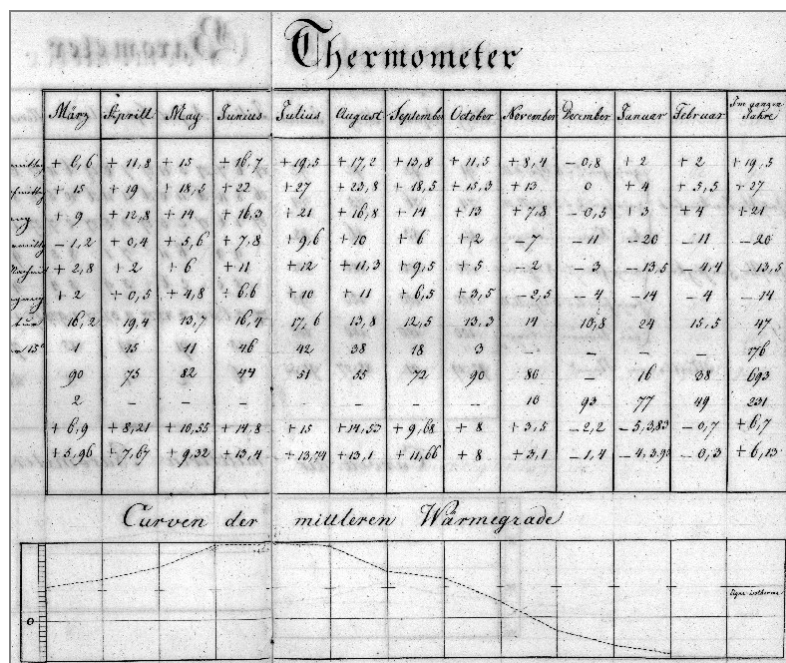 Thermometer
März Aprill May Junius Julius August September October November December Januar Februar Im ganzen Jahre
+ 6,6 + 11,8 + 15 + 16,7 + 19,5 + 17,2 + 13,8 + 11,5 + 8,4 – 0,8 + 2 + 2 + 19,5
+ 15 + 19 + 18,5 + 22 + 27 + 23,8 + 18,5 + 15,3 + 13 0 + 4 + 5,5 + 27
+ 9 + 12,8 + 14 + 16,3 + 21 + 16,8 + 14 + 13 + 7,8 – 0,5 + 3 + 4 + 21
– 1,2 + 0,4 + 5,6 + 7,8 + 9,6 + 10 + 6 + 2 – 7 – 11 – 20 – 11 – 20
+ 2,8 + 2 + 6 + 11 + 12 + 11,3 + 9,5 + 5 – 2 – 3 – 13,5 – 4,4 – 13,5
+ 2 + 0,5 + 4,8 + 6,6 + 10 + 11 + 6,5 + 3,5 – 2,5 – 4 – 14 – 4 – 14
16,2 19,4 13,7 16,4 17,6 13,8 12,5 13,3 14 10,8 24 15,5 47
1 15 11 46 42 38 18 3 – – – – 176
90 75 82 44 51 55 72 90 86 – 16 38 693
2 – – – – – – – 10 93 77 49 231
+ 6,9 + 8,21 + 10,55 + 14,8 + 15 + 14,53 + 9,68 + 8 + 3,5 – 2,2 – 5,383 – 0,7 + 6,7
+ 5,96 + 7,67 + 9,32 + 13,4 + 13,74 + 13,1 + 11,66 + 8 + 3,1 – 1,4 – 4,393 – 0,3 + 6,13
Curven der mittleren Wärmegrade
0